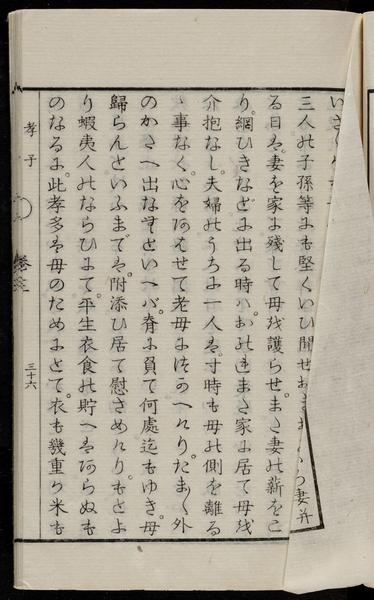 三人の子孫等にも堅くいひ聞せお
妻并
る日は。妻を家に残して母を護らせ。また妻の薪をこ
り。網ひきなどに出る時ハ。おのれまた家に居て母を
介抱なし。夫婦のうちに一人は。寸時も母の側を離る
ゝ事なく。心をあはせて老母につかへけり。たま〱外
のかたへ出なむといへバ。脊に負て何處迄もゆき。母
歸らんといふまでは。附添ひ居て慰さめけり。もとよ
り蝦夷人のならひにて。平生衣食の貯へはあらぬも
のなるに。此孝多は母のためにとて。衣も幾重か米も
孝子
三十六